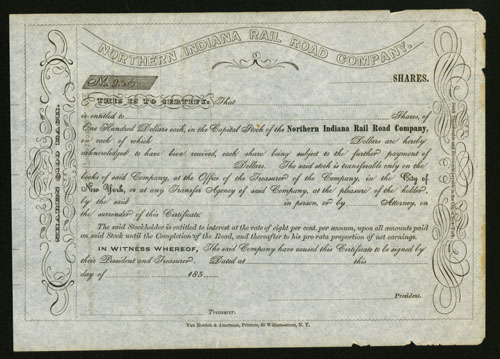 NORTHERN INDIANA RAIL ROAD COMPANY.
No. 255
SHARES.
THIS IS TO CERTIFY, That
is entitled to Shares, of
One Hundred Dollars each, in the Capital Stock of the Northern Indiana Rail Road Company,
on each of which Dollars are hereby
acknowledged to have been received, each share being subject to the further payment of
Dollars. The said stock is transferable only on the
books of said Company, at the Office of the Treasurer of the Company, in the City of
New York, or at any Transfer Agency of said Company, at the pleasure of the holder,
by the said in person, or by Attorney, on
the surrender of this Certificate.
The said Stockholder is entitled to interest at the rate of eight per cent. per annum, upon all amounts paid
on said Stock until the Completion of the Road, and thereafter to his pro rata proportion of net earnings.
IN WITNESS WHEREOF, The said Company have caused this Certificate to be signed by
their President and Treasurer. Dated at this
day of 185
President.
Treasurer.
Van Norden & Amerman, Printers, 60 William-street, N. Y.